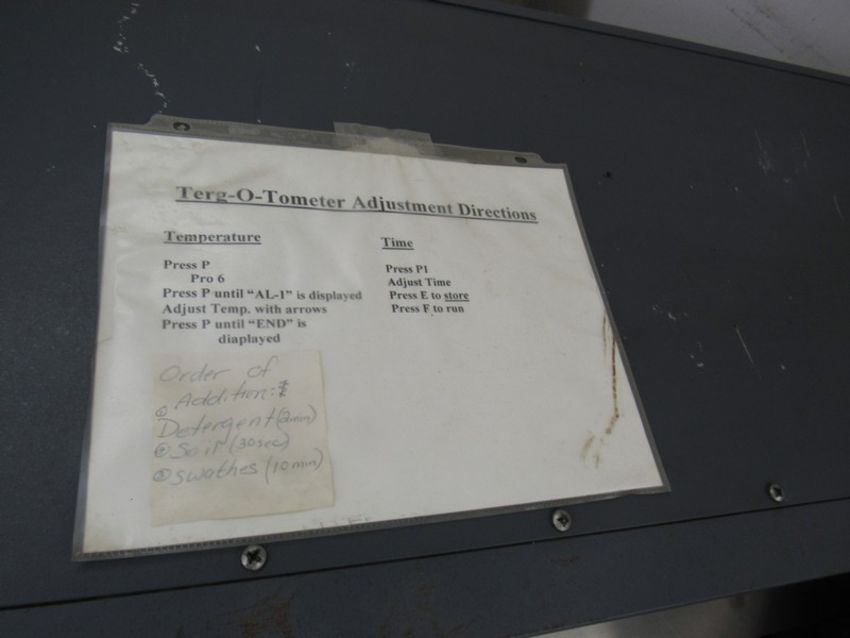 Terg-O-Tometer Adjustment Directions
Temperature
Press P
Pro 6
Press P until "AL-1" is displayed
Adjust Temp. with arrows
Press P until "END" is
diaplayed
Time
Press P1
Adjust Time
Press E to store
Press F to run
Order of
① Addition:
Detergent (2min)
② Soil (30sec)
③ swathes (10min)